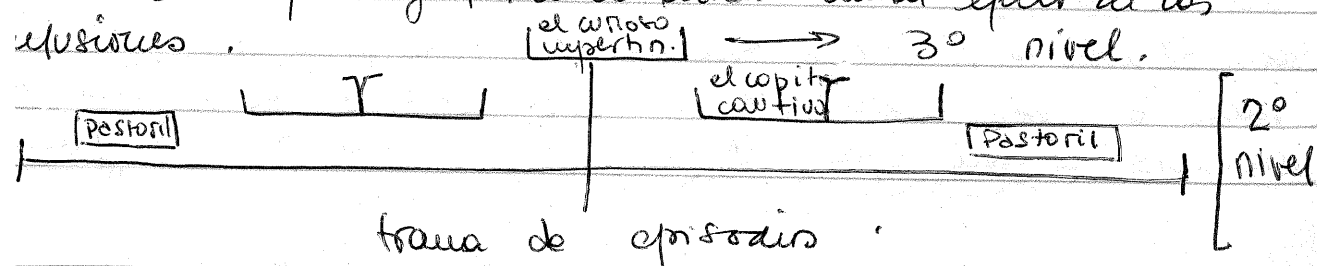 efusiones.
el curioso
impertin. → 3º nivel.
el capit.
cautivo
Pastoril
Pastoril
2º
nivel
trama de episodios.